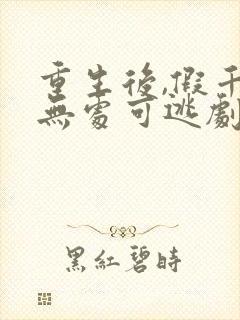 重生後,假千
無處可逃劇
黑紅碧時